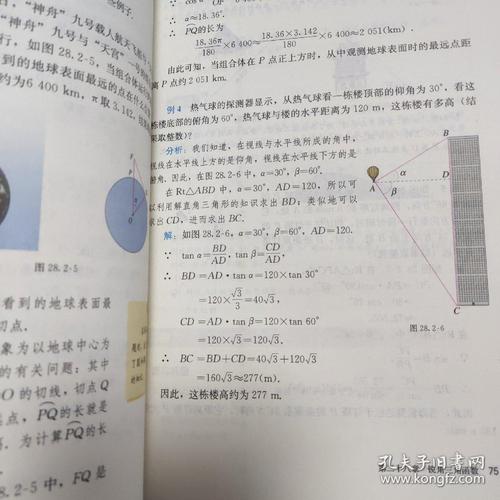 些例子.
"神舟"九号载人航天飞船与
"神舟"九号与"天宫"一号
行，如图 28.2-5，当组合体
到的地球表面最远的点在什么
约为6 400 km，π取3.142，
P
O
图 28.2-5
看到的地球表面最
切点.
象为以地球中心为
的有关问题：其中
O的切线，切点Q
远点，PQ的长就是
离. 为计算PQ的长
28.2-5 中，FQ 是
∴ α≈18.36°.
∴ PQ的长为
18.36π/180×6 400≈18.36×3.142/180×6 400≈2 051(km).
由此可知，当组合体在 P 点正上方时，从中观测地球表面时的最远点距
离 P 点约 2 051 km.
例 4 热气球的探测器显示，从热气球看一栋楼顶部的仰角为 30°，看这
栋楼底部的俯角为 60°，热气球与楼的水平距离为 120 m，这栋楼有多高（结
果取整数）？
分析：我们知道，在视线与水平线所成的角中，
视线在水平线上方的是仰角，视线在水平线下方的是
俯角. 因此，在图 28.2-6 中，α=30°，β=60°.
在 Rt△ABD 中，α=30°，AD=120，所以可
以利用解直角三角形的知识求出 BD；类似地可以
求出 CD，进而求出 BC.
解：如图 28.2-6，α=30°，β=60°，AD=120.
∵ tan α=BD/AD，tan β=CD/AD，
∴ BD=AD·tan α=120×tan 30°
=120×√3/3=40√3，
CD=AD·tan β=120×tan 60°
=120×√3=120√3.
∴ BC=BD+CD=40√3+120√3
=160√3≈277(m).
因此，这栋楼高约为 277 m.
B
A
α
β
D
C
图 28.2-6
第二十八章 锐角三角函数 75
孔夫子旧书网